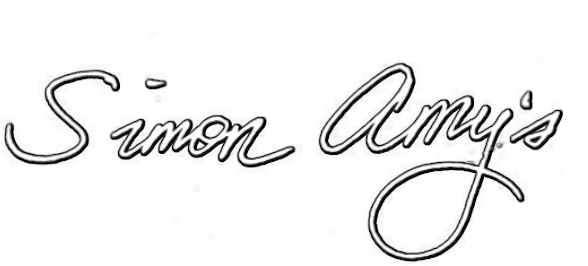 Simon Amy's